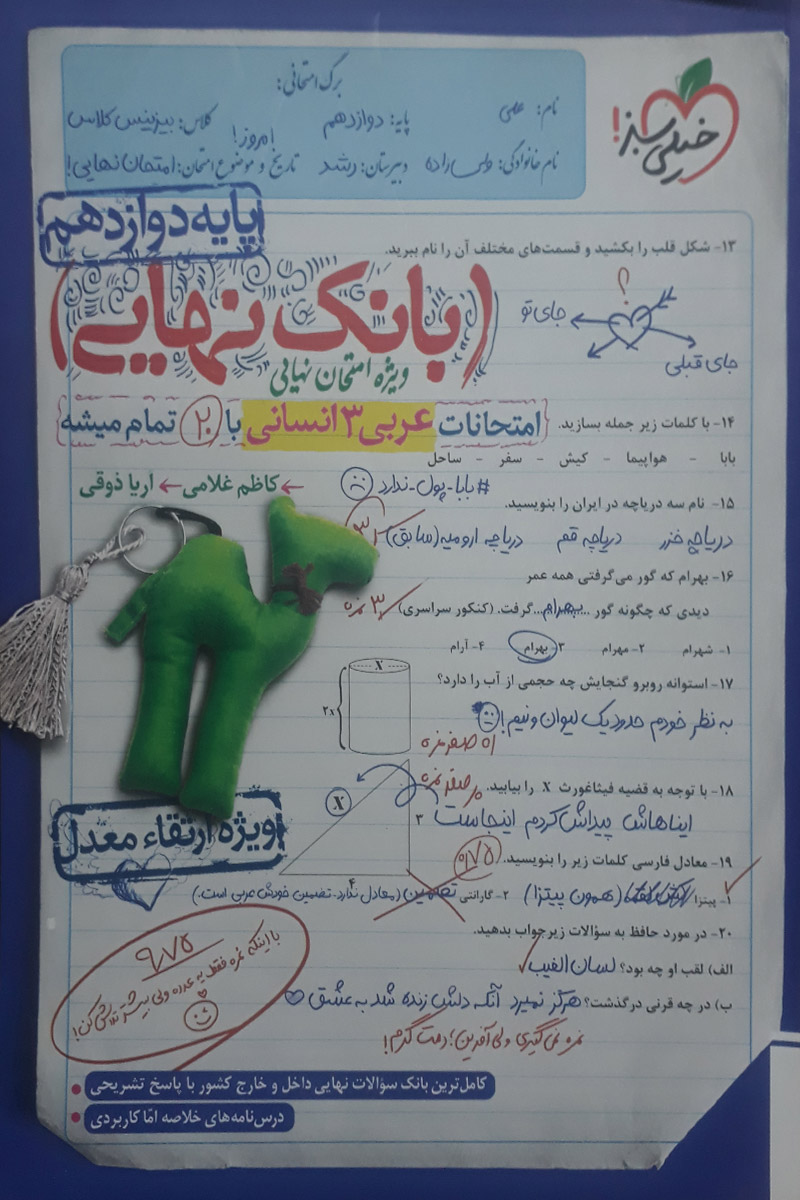 برگ امتحانی:
نام: علی
پایه: دوازدهم
کلاس: بیزینس کلاس
نام خانوادگی: ولی زاده
دبیرستان: رشد
تاریخ و موضوع امتحان: امتحان نهایی!
امروز!
خیلی سبز!
پایه دوازدهم
۱۳- شکل قلب را بکشید و قسمت‌های مختلف آن را نام ببرید.
؟
جای تو
جای قبلی
(بانک نهایی)
ویژه امتحان نهایی
امتحانات عربی ۳ انسانی با ۲۰ تمام میشه
۱۴- با کلمات زیر جمله بسازید.
بابا - هواپیما - کیش - سفر - ساحل
#بابا-پول-ندارد
کاظم غلامی
اریا ذوقی
۱۵- نام سه دریاچه در ایران را بنویسید.
دریاچه خزر دریاچه قم دریاچه ارومیه (سابق)
۱۶- بهرام که گور می‌گرفتی همه عمر
دیدی که چگونه گور ...بهرام... گرفت. (کنکور سراسری)
۱- شهرام ۲- مهرام ۳- بهرام ۴- آرام
۱۷- استوانه روبرو گنجایش چه حجمی از آب را دارد؟
x
۲x
به نظر خودم حدود یک لیوان و نیم!
۱۸- با توجه به قضیه فیثاغورث X را بیابید.
صفر نمره
X
۳
۴
ایناهاش پیداش کردم اینجاست
ویژه ارتقاء معدل
۱۹- معادل فارسی کلمات زیر را بنویسید.
۰/۷۵
۱- پیتزا (همون پیتزا) ۲- گارانتی تضمین (معادل ندارد-تضمین خودش عربی است.)
۲۰- در مورد حافظ به سؤالات زیر جواب بدهید.
الف) لقب او چه بود؟ لسان الغیب
ب) در چه قرنی درگذشت؟ هرگز نمیرد آنکه دلش زنده شد به عشق
نمره نمی‌گیری ولی آفرین؛ دمت گرم!
۹/۷۵
با اینکه نمره فقط یه عدده ولی بیشتر تلاش کن!
کامل‌ترین بانک سؤالات نهایی داخل و خارج کشور با پاسخ تشریحی
درس‌نامه‌های خلاصه امّا کاربردی